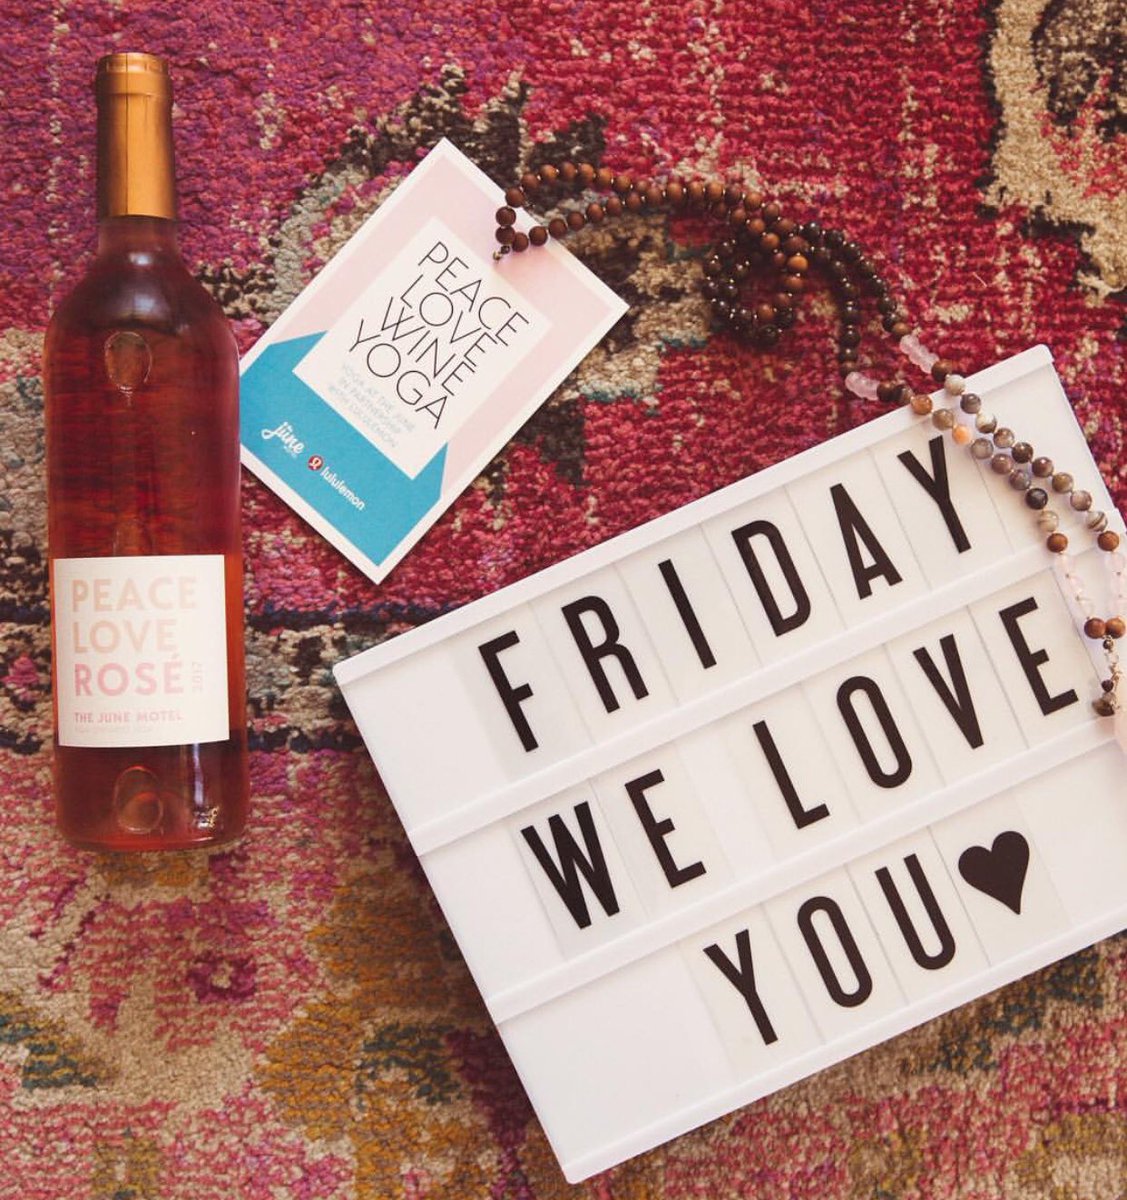 PEACE
LOVE
WINE
YOGA
YOGA AT THE JUNE
IN PARTNERSHIP
WITH LULULEMON
the
june
motel
lululemon
PEACE
LOVE
ROSÉ 2017
THE JUNE MOTEL
FRIDAY
WE LOVE
YOU♥